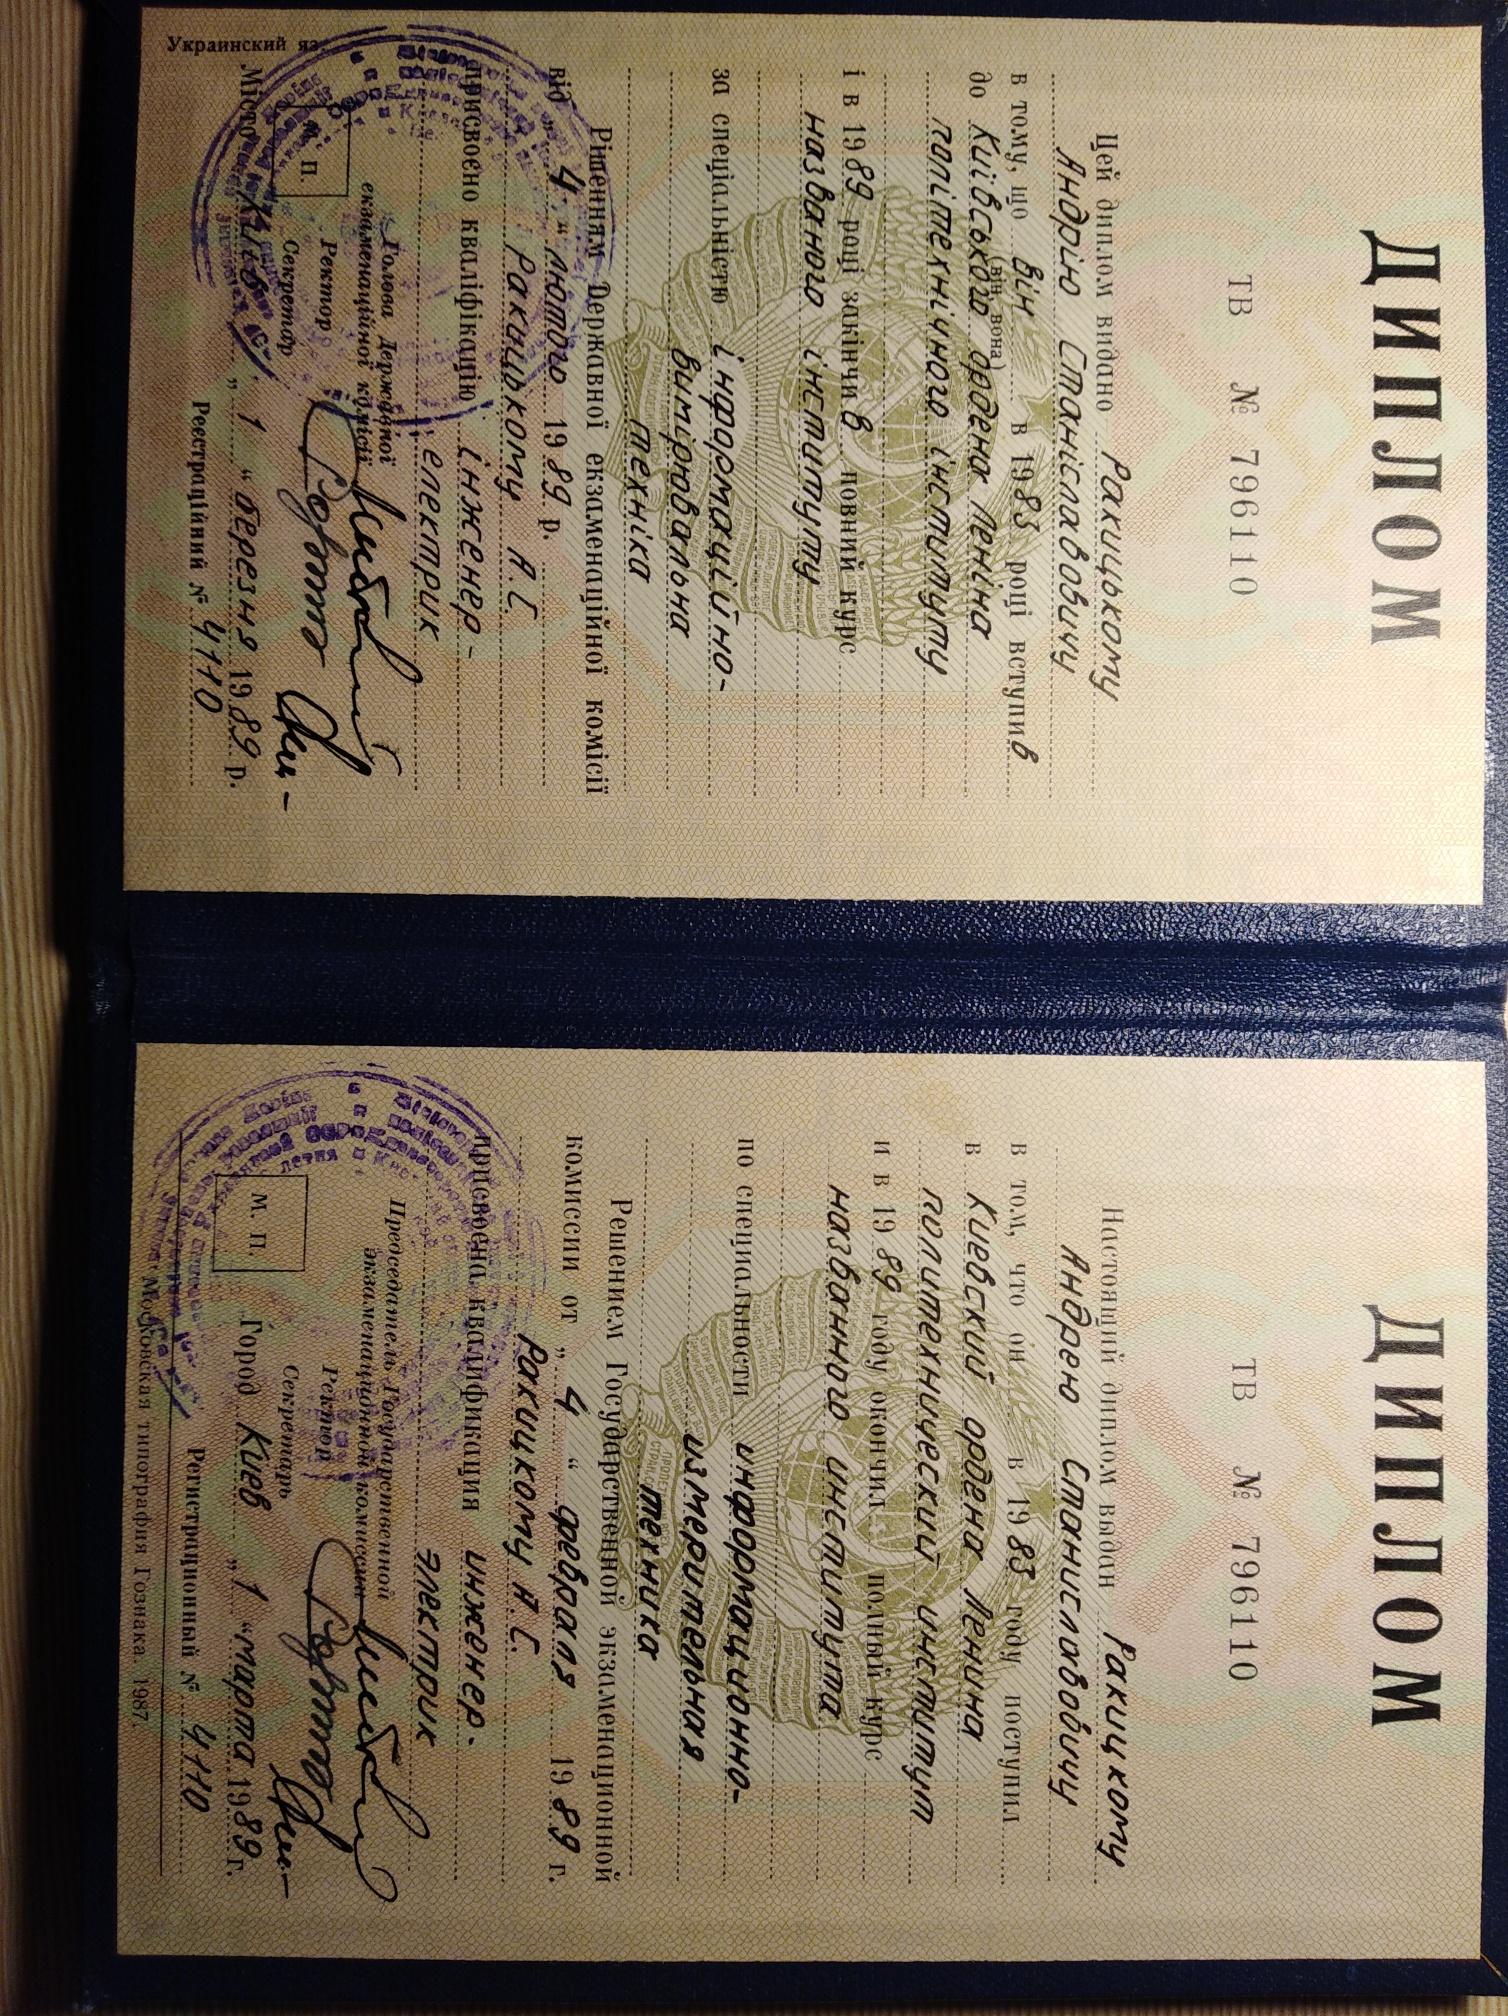 ДИПЛОМ
ТВ № 796110
Цей диплом видано Ракицькому
Андрію Станіславовичу
в тому, що він в 1983 році вступив
(він, вона)
до Київського ордена Леніна
політехнічного інституту
і в 1989 році закінчив повний курс
названого інституту
за спеціальністю інформаційно-
вимірювальна
техніка
Рішенням Державної екзаменаційної комісії
від „4“ лютого 1989 р.
Ракицькому А.С.
присвоєно кваліфікацію інженер-
електрик
Голова Державної
екзаменаційної комісії
Ректор
Секретар
М. П.
Місто Київ „1“ березня 1989 р.
Реєстраційний № 4110
Украинский яз.
ДИПЛОМ
ТВ № 796110
Настоящий диплом выдан Ракицкому
Андрею Станиславовичу
в том, что он в 1983 году поступил
в Киевский ордена Ленина
политехнический институт
и в 1989 году окончил полный курс
названного института
по специальности информационно-
измерительная
техника
Решением Государственной экзаменационной
комиссии от „4“ февраля 1989 г.
Ракицкому А.С.
присвоена квалификация инженер-
электрик
Председатель Государственной
экзаменационной комиссии
Ректор
Секретарь
М. П.
Город Киев „1“ марта 1989 г.
Регистрационный № 4110
Московская типография Гознака. 1987.